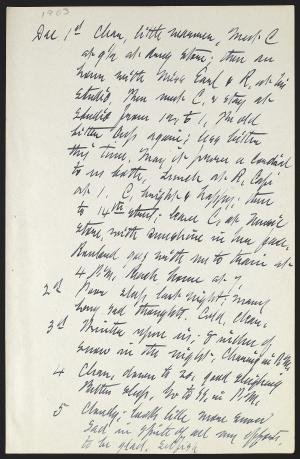 1903
Dec 1st Clear, little warmer, Meet C
at 9½ at drug store; then an
hour with Miss Earl & R. at his
studio. Then meet C. & stay at
studio from 12 to 1, The old
bitter cup again; less bitter
this time. May it prove a cordial
to us both. Lunch at R. Cafe
at 1. C. bright & happy; then
to 14th street; leave C. at music
store, with sunshine in her face.
Rowland goes with me to train at
4 P.M. Reach home at 7.
2d Poor sleep last night; many
long sad thoughts. Cold, clear.
3d Winter upon us; 8 inches of
snow in the night. Clearing in P.M.
4 Clear, down to 20, good sleighing
Better sleep. Go to in P.M.
5 Cloudy; looks like more snow
Sad in spite of all my efforts
to be glad.